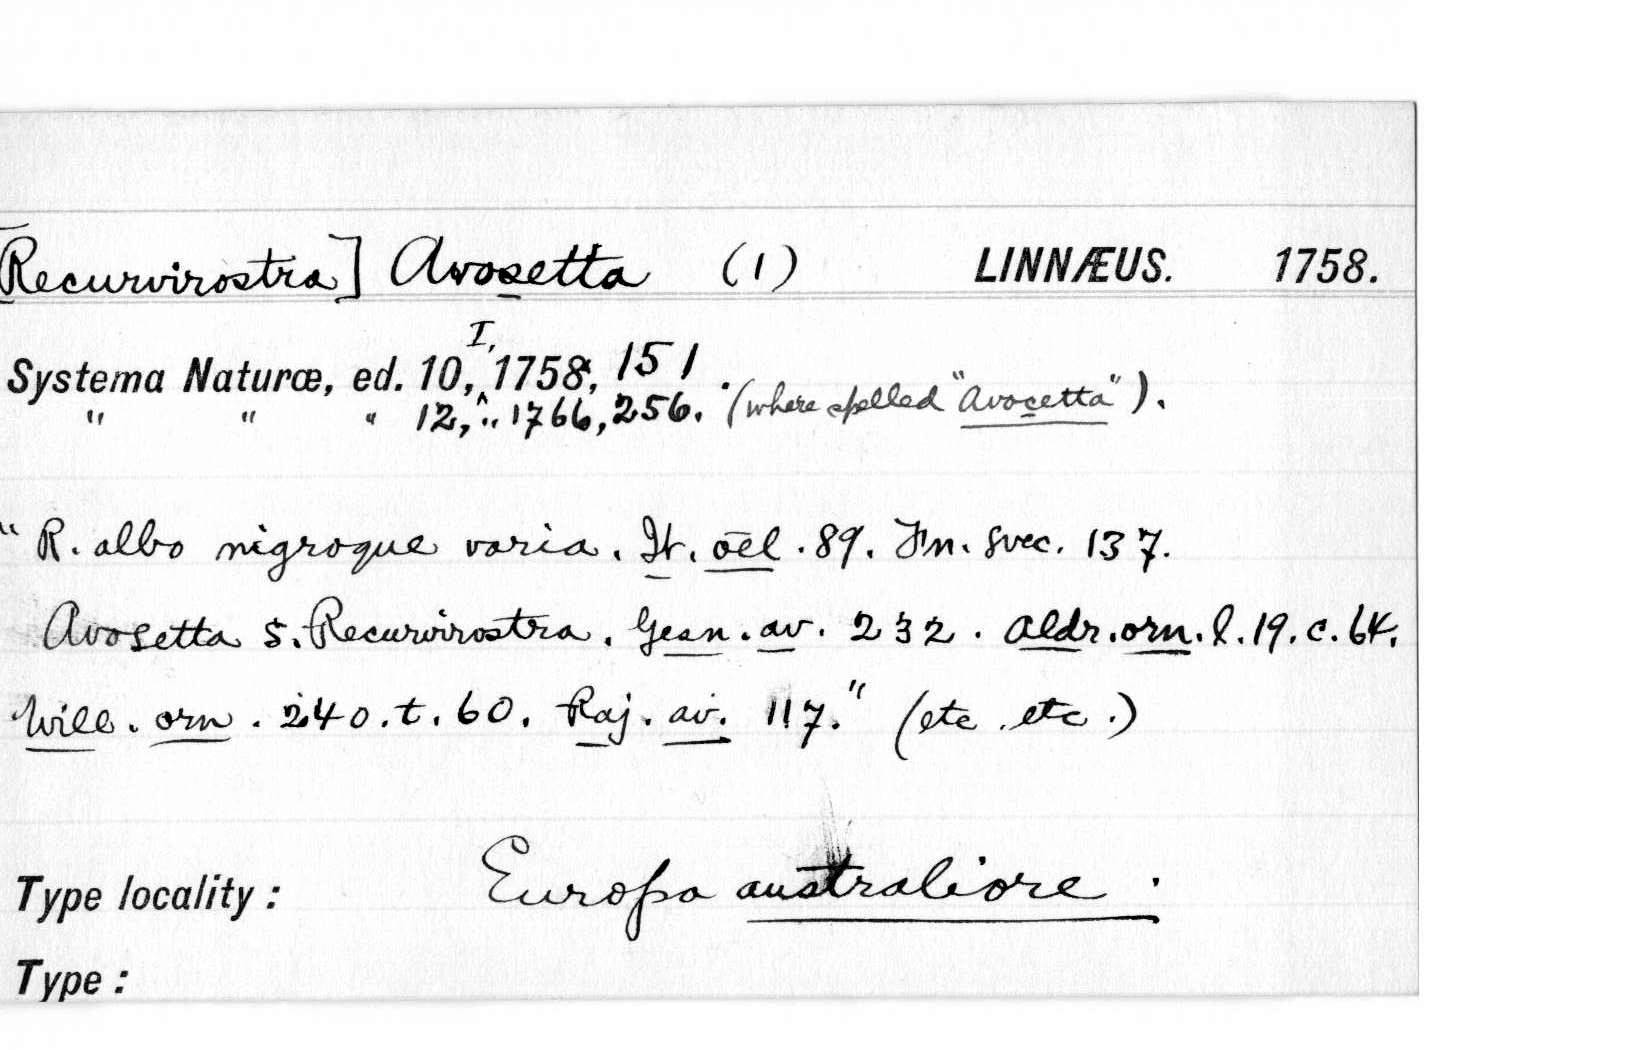 [Recurvirostra] Avosetta (1) LINNÆUS. 1758.
Systema Naturæ, ed. 10, I, 1758, 151.
" " " 12, ". 1766, 256. (where spelled "Avocetta").
"R. albo nigroque varia. It. oel. 89. Fn. svec. 137.
Avosetta s. Recurvirostra. Gesn. av. 232. Aldr. orn. l. 19. c. 64.
Will. orn. 240. t. 60. Raj. av. 117." (etc. etc.)
Type locality: Europa australiore.
Type: